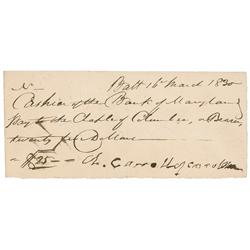 No— Balt 16 March 1830
Cashier of the Bank of Maryland
Pay to the Chaple of Columbia, or Bearer
twenty five Dollars
$25 — Ch. Carroll of Carrollton